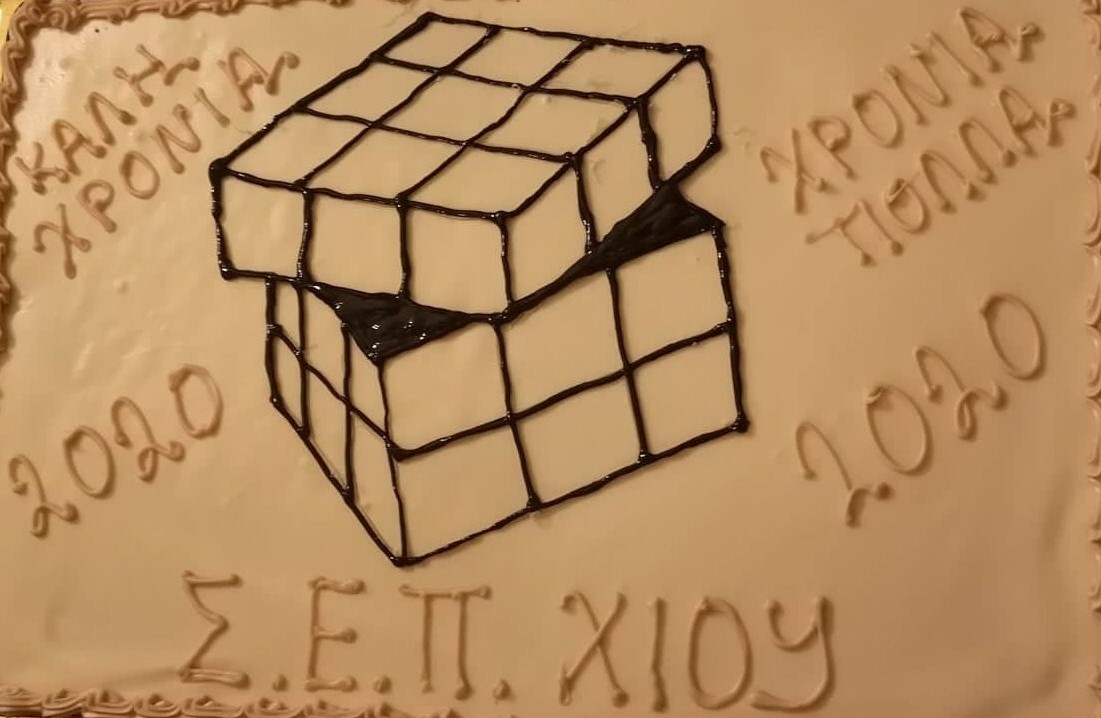 ΚΑΛΗ
ΧΡΟΝΙΑ
ΧΡΟΝΙΑ
ΠΟΛΛΑ
2020
2020
Σ.Ε.Π. ΧΙΟΥ